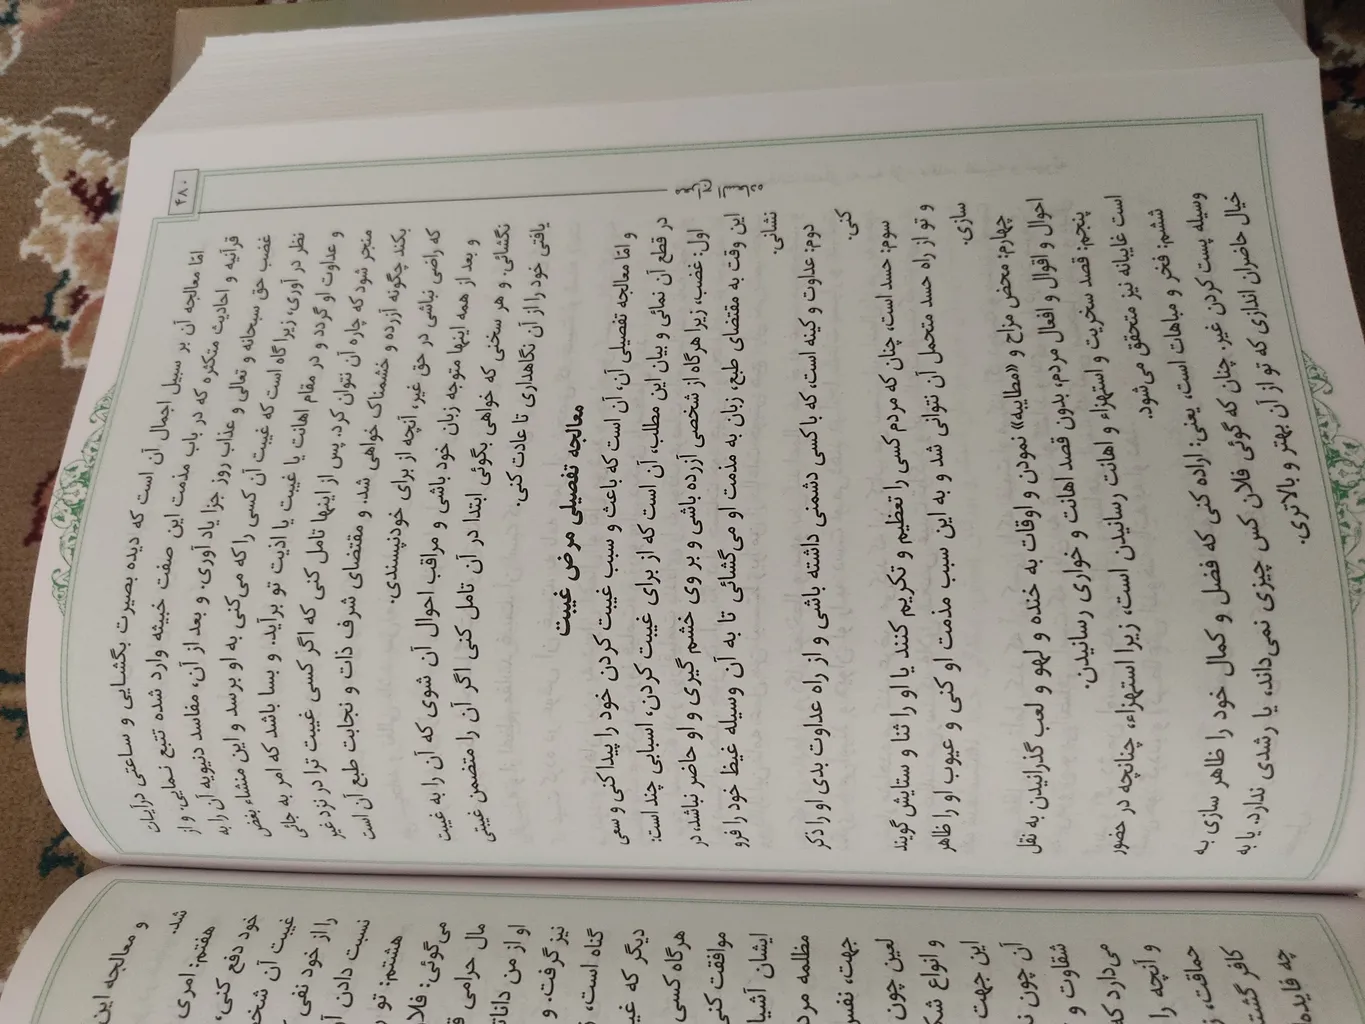 ۴۸۰
امّا معالجه آن بر سبیل اجمال آن است که دیده بصیرت بگشایی و ساعتی در آیات
قرآنیه و احادیث متکثره که در باب مذمت این صفت خبیثه وارد شده تتبع نمایی، و از
غضب حق سبحانه و تعالی و عذاب روز جزا یاد آوری. و بعد از آن، مفاسد دنیویه آن را به
نظر در آوری، زیرا گاه است که غیبت آن کسی را که می‌کنی به او برسد و این منشاء بغض
و عداوت او گردد و در مقام اهانت یا غیبت یا اذیت تو برآید. و بسا باشد که امر به جائی
منجر شود که چاره آن نتوان کرد. پس از اینها تامل کنی که اگر کسی غیبت ترا در نزد غیر
بکند چگونه آزرده و خشمناک خواهی شد، و مقتضای شرف ذات و نجابت طبع آن است
که راضی نباشی در حق غیر، آنچه از برای خودنپسندی.
و بعد از همه اینها متوجه زبان خود باشی و مراقب احوال آن شوی که آن را به غیبت
نگشائی. و هر سخنی که خواهی بگوئی ابتدا در آن تامل کنی اگر آن را متضمن غیبتی
یافتی خود را از آن نگاهداری تا عادت کنی.
معالجه تفصیلی مرض غیبت
و امّا معالجه تفصیلی آن، آن است که باعث و سبب غیبت کردن خود را پیدا کنی و سعی
در قطع آن نمائی و بیان این مطلب، آن است که از برای غیبت کردن، اسبابی چند است:
اول: غضب، زیرا هرگاه از شخصی آزرده باشی و بر وی خشم گیری و او حاضر نباشد، در
این وقت به مقتضای طبع، زبان به مذمت او می‌گشائی تا به آن وسیله غیظ خود را فرو
نشانی.
دوم: عداوت و کینه است، که با کسی دشمنی داشته باشی و از راه عداوت بدی او را ذکر
کنی.
سوم: حسد است، چنان که مردم کسی را تعظیم و تکریم کنند یا او را ثنا و ستایش گویند
و تو از راه حسد متحمل آن نتوانی شد و به این سبب مذمت او کنی و عیوب او را ظاهر
سازی.
چهارم: محض مزاح و «مطایبه» نمودن و اوقات به خنده و لهو و لعب گذرانیدن به نقل
احوال و اقوال و افعال مردم، بدون قصد اهانت و خواری رسانیدن.
پنجم: قصد سخریت و استهزاء و اهانت رسانیدن است، زیرا استهزاء، چنانچه در حضور
است غایبانه نیز متحقق می‌شود.
ششم: فخر و مباهات است، یعنی: اراده کنی که فضل و کمال خود را ظاهر سازی به
وسیله پست کردن غیر. چنان که گوئی فلان کس چیزی نمی‌داند، یا رشدی ندارد. یا به
خیال حاضران اندازی که تو از آن بهتر و بالاتری.
و معالجه این
شد.
هفتم: امری
غیبت آن شخ
خود دفع کنی،
را از خود نفی
نسبت دادن آن
هشتم: تو
می‌گوئی: فلا
مال حرامی
او از من دانا
نیز گرفت، و
گناه است،
دیگر که غی
هرگاه کسی
موافقت کنی
ایشان آشیا
مظلمه مرد
جهت، نفس
لعین چون
و انواع شک
این جهت
آن چون ن
شقاوت و
می‌دارد که
و آنچه را
حماقت،
کافر گشت
چه فایده